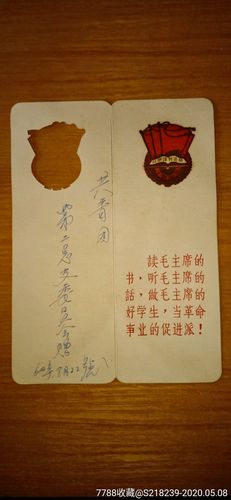 共青团
第二总支委员会赠
读毛主席的
书，听毛主席的
話，做毛主席的
好学生，当革命
事业的促进派！
7788收藏@S218239-2020.05.08